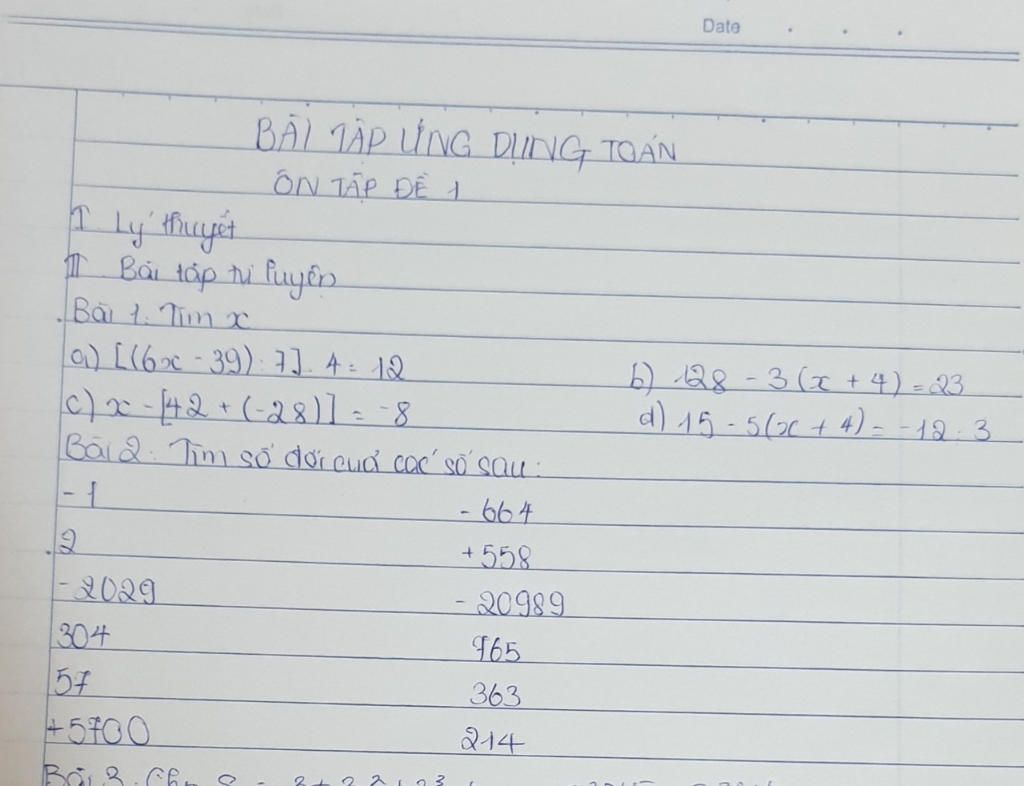 Date
BÀI TẬP ỨNG DỤNG TOÁN
ÔN TẬP ĐỀ 1
I. Lý thuyết
II Bài tập tự luyện
Bài 1. Tìm x
a) [(6x - 39) : 7] . 4 = 12 b) 128 - 3(x + 4) = 23
c) x - [42 + (-28)] = -8 d) 15 - 5(x + 4) = -12 : 3
Bài 2. Tìm số đối của các số sau:
-1 - 664
2 +558
-2029 - 20989
304 965
57 363
+5700 214
Bài 3. Cho